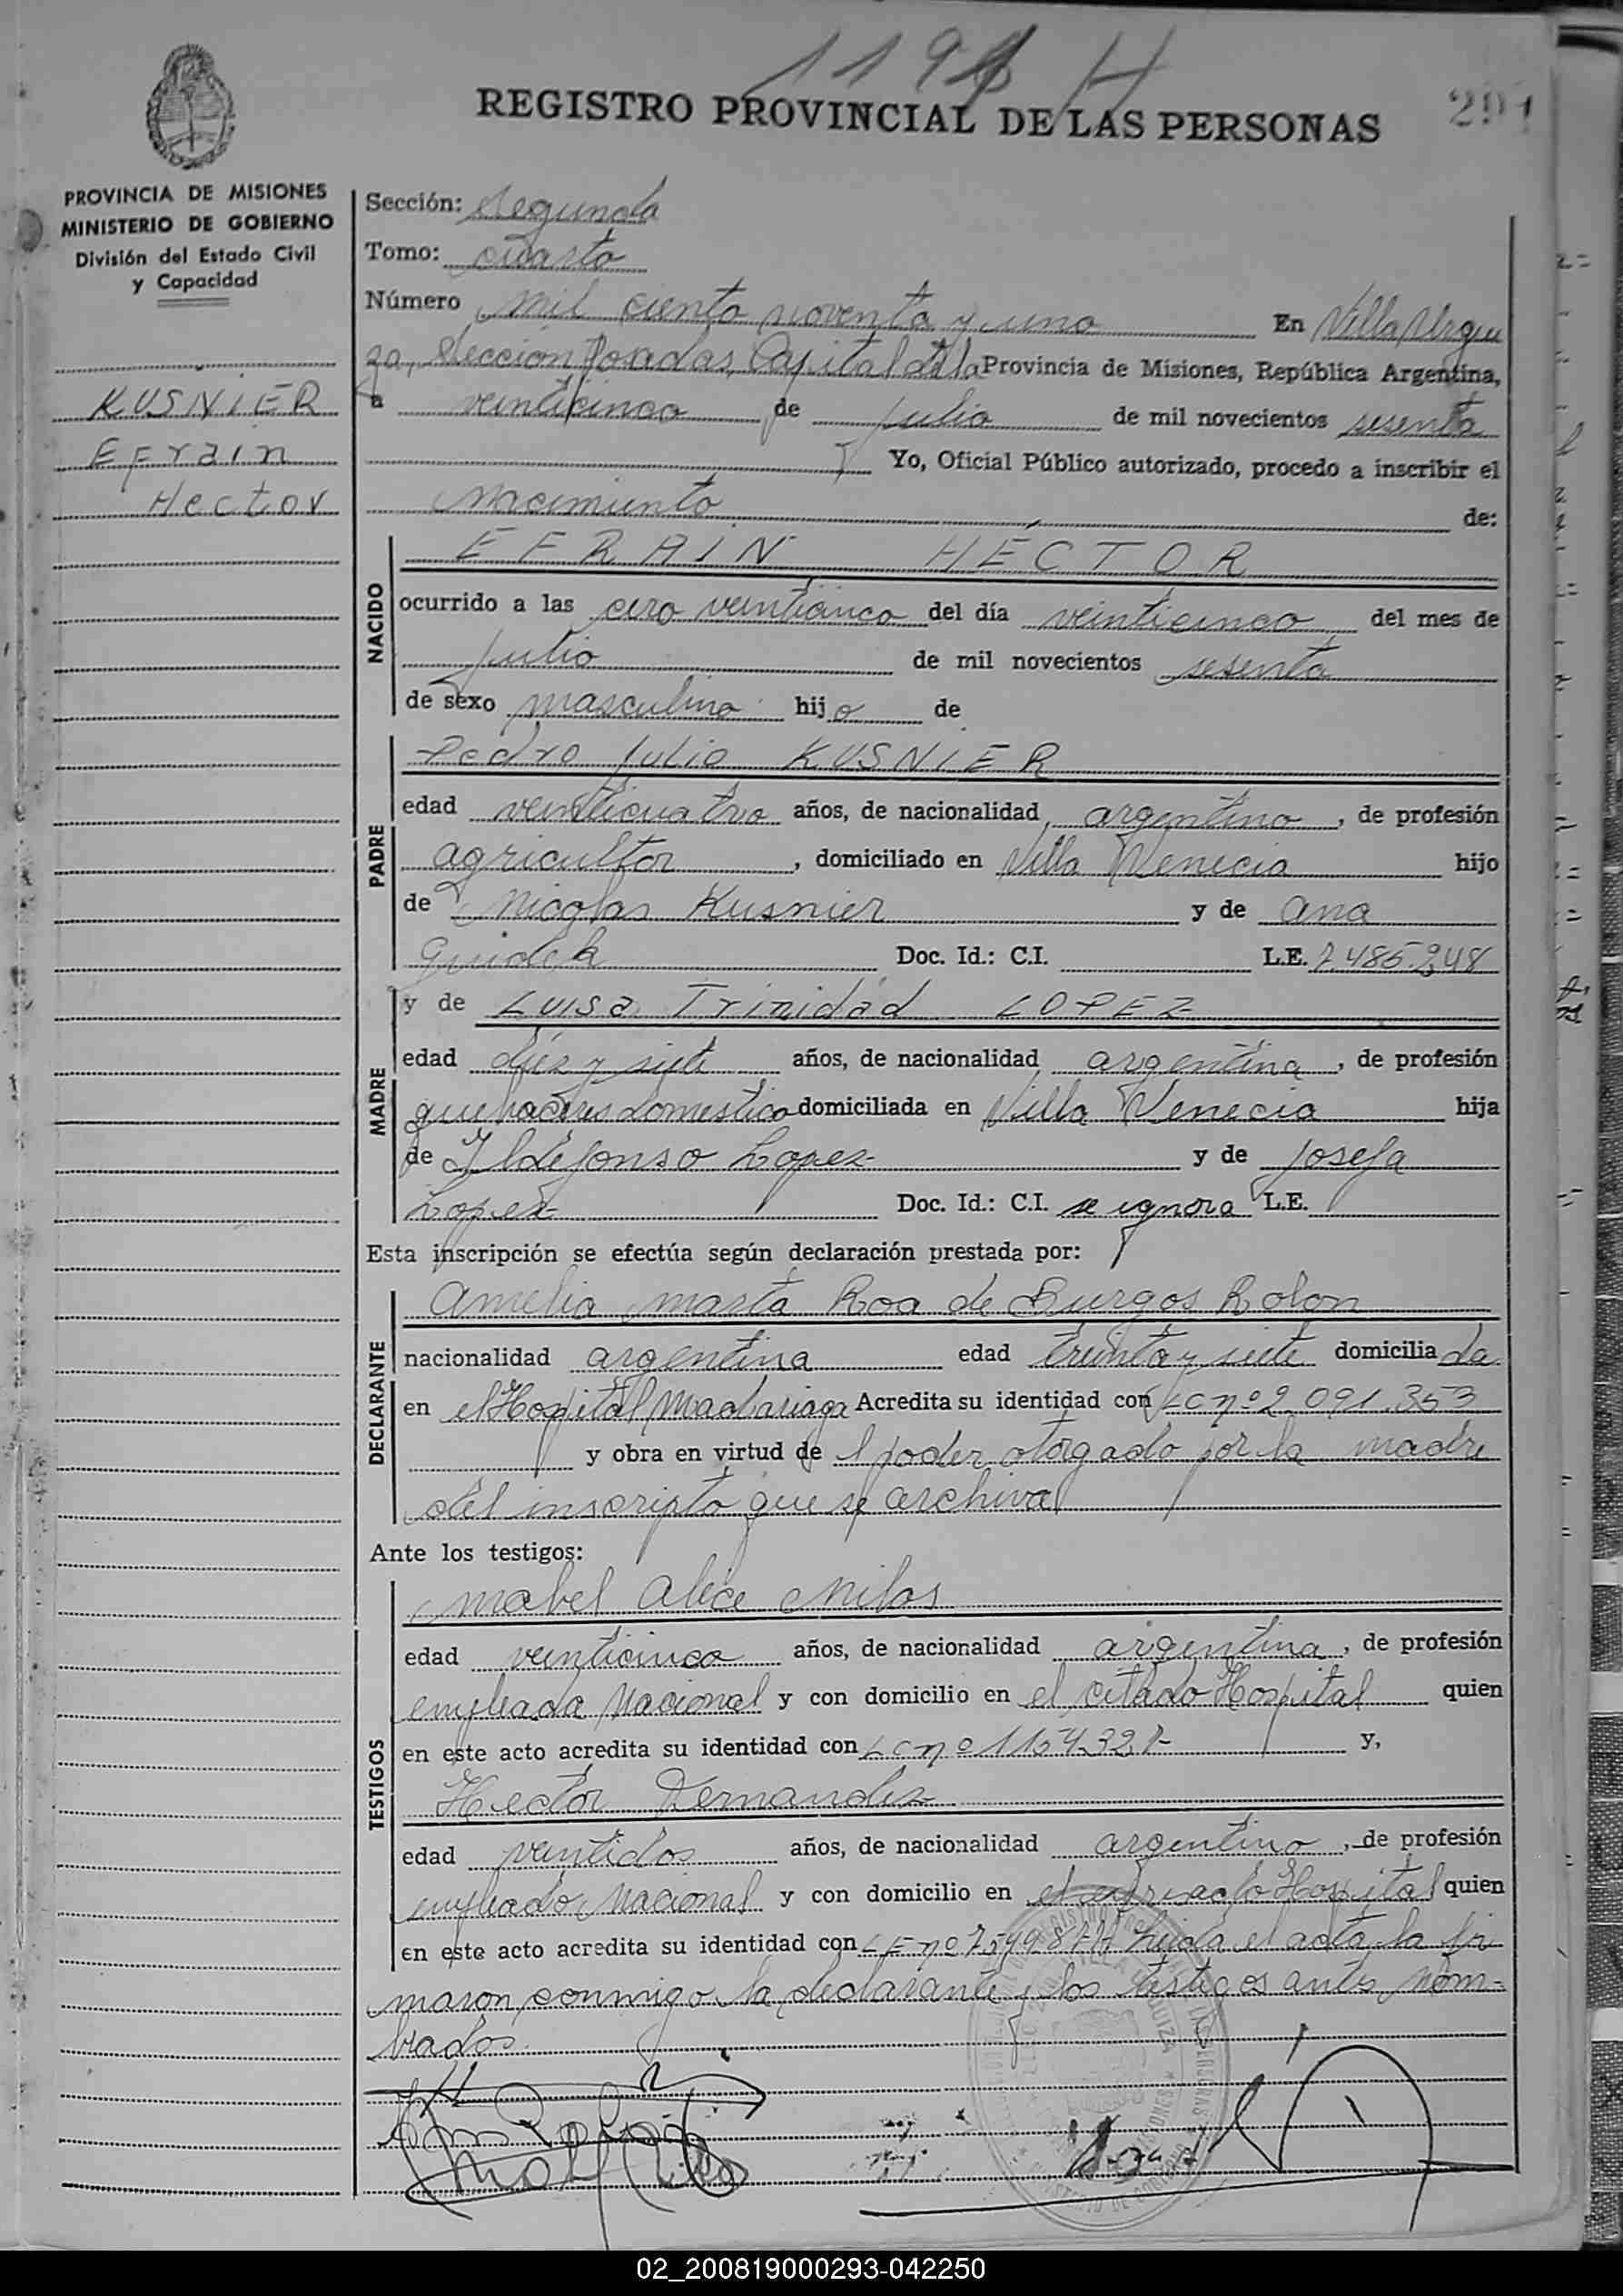 1191 H
REGISTRO PROVINCIAL DE LAS PERSONAS
291
PROVINCIA DE MISIONES
MINISTERIO DE GOBIERNO
División del Estado Civil
y Capacidad
KUSNIER
Efrain
Hector
Sección: Segunda
Tomo: Cuarto
Número mil ciento noventa y uno En Villa Urqui
za, Sección Posadas, Capital de la Provincia de Misiones, República Argentina,
a veinticinco de julio de mil novecientos sesenta
Yo, Oficial Público autorizado, procedo a inscribir el
nacimiento de:
NACIDO
EFRAIN HÉCTOR
ocurrido a las cero veinticinco del día veinticinco del mes de
julio de mil novecientos sesenta
de sexo masculino hijo de
PADRE
Pedro Julio KUSNIER
edad veinticuatro años, de nacionalidad argentino, de profesión
agricultor, domiciliado en Villa Venecia hijo
de Nicolas Kusnier y de Ana
Guidek Doc. Id.: C.I. L.E. 7.485.248
MADRE
y de Luisa Trinidad LOPEZ
edad diez y siete años, de nacionalidad argentina, de profesión
quehaceres domestico domiciliada en Villa Venecia hija
de Ildefonso Lopez y de Josefa
Lopez Doc. Id.: C.I. se ignora L.E.
Esta inscripción se efectúa según declaración prestada por:
DECLARANTE
Amelia Marta Roa de Burgos Rolon
nacionalidad argentina edad treinta y siete domiciliada
en el Hospital Madariaga Acredita su identidad con LC nº 2.091.353
y obra en virtud del poder otorgado por la madre
del inscripto que se archiva
Ante los testigos:
TESTIGOS
Mabel Alice Milos
edad veinticinco años, de nacionalidad argentina, de profesión
empleada Nacional y con domicilio en el citado Hospital quien
en este acto acredita su identidad con LC nº 1154321 y,
Hector Fernandez
edad veintidos años, de nacionalidad argentino, de profesión
empleado Nacional y con domicilio en el Hospital quien
en este acto acredita su identidad con LE nº leida el acta, la fir
maron conmigo la declarante y los testigos antes nom-
brados.
02_200819000293-042250